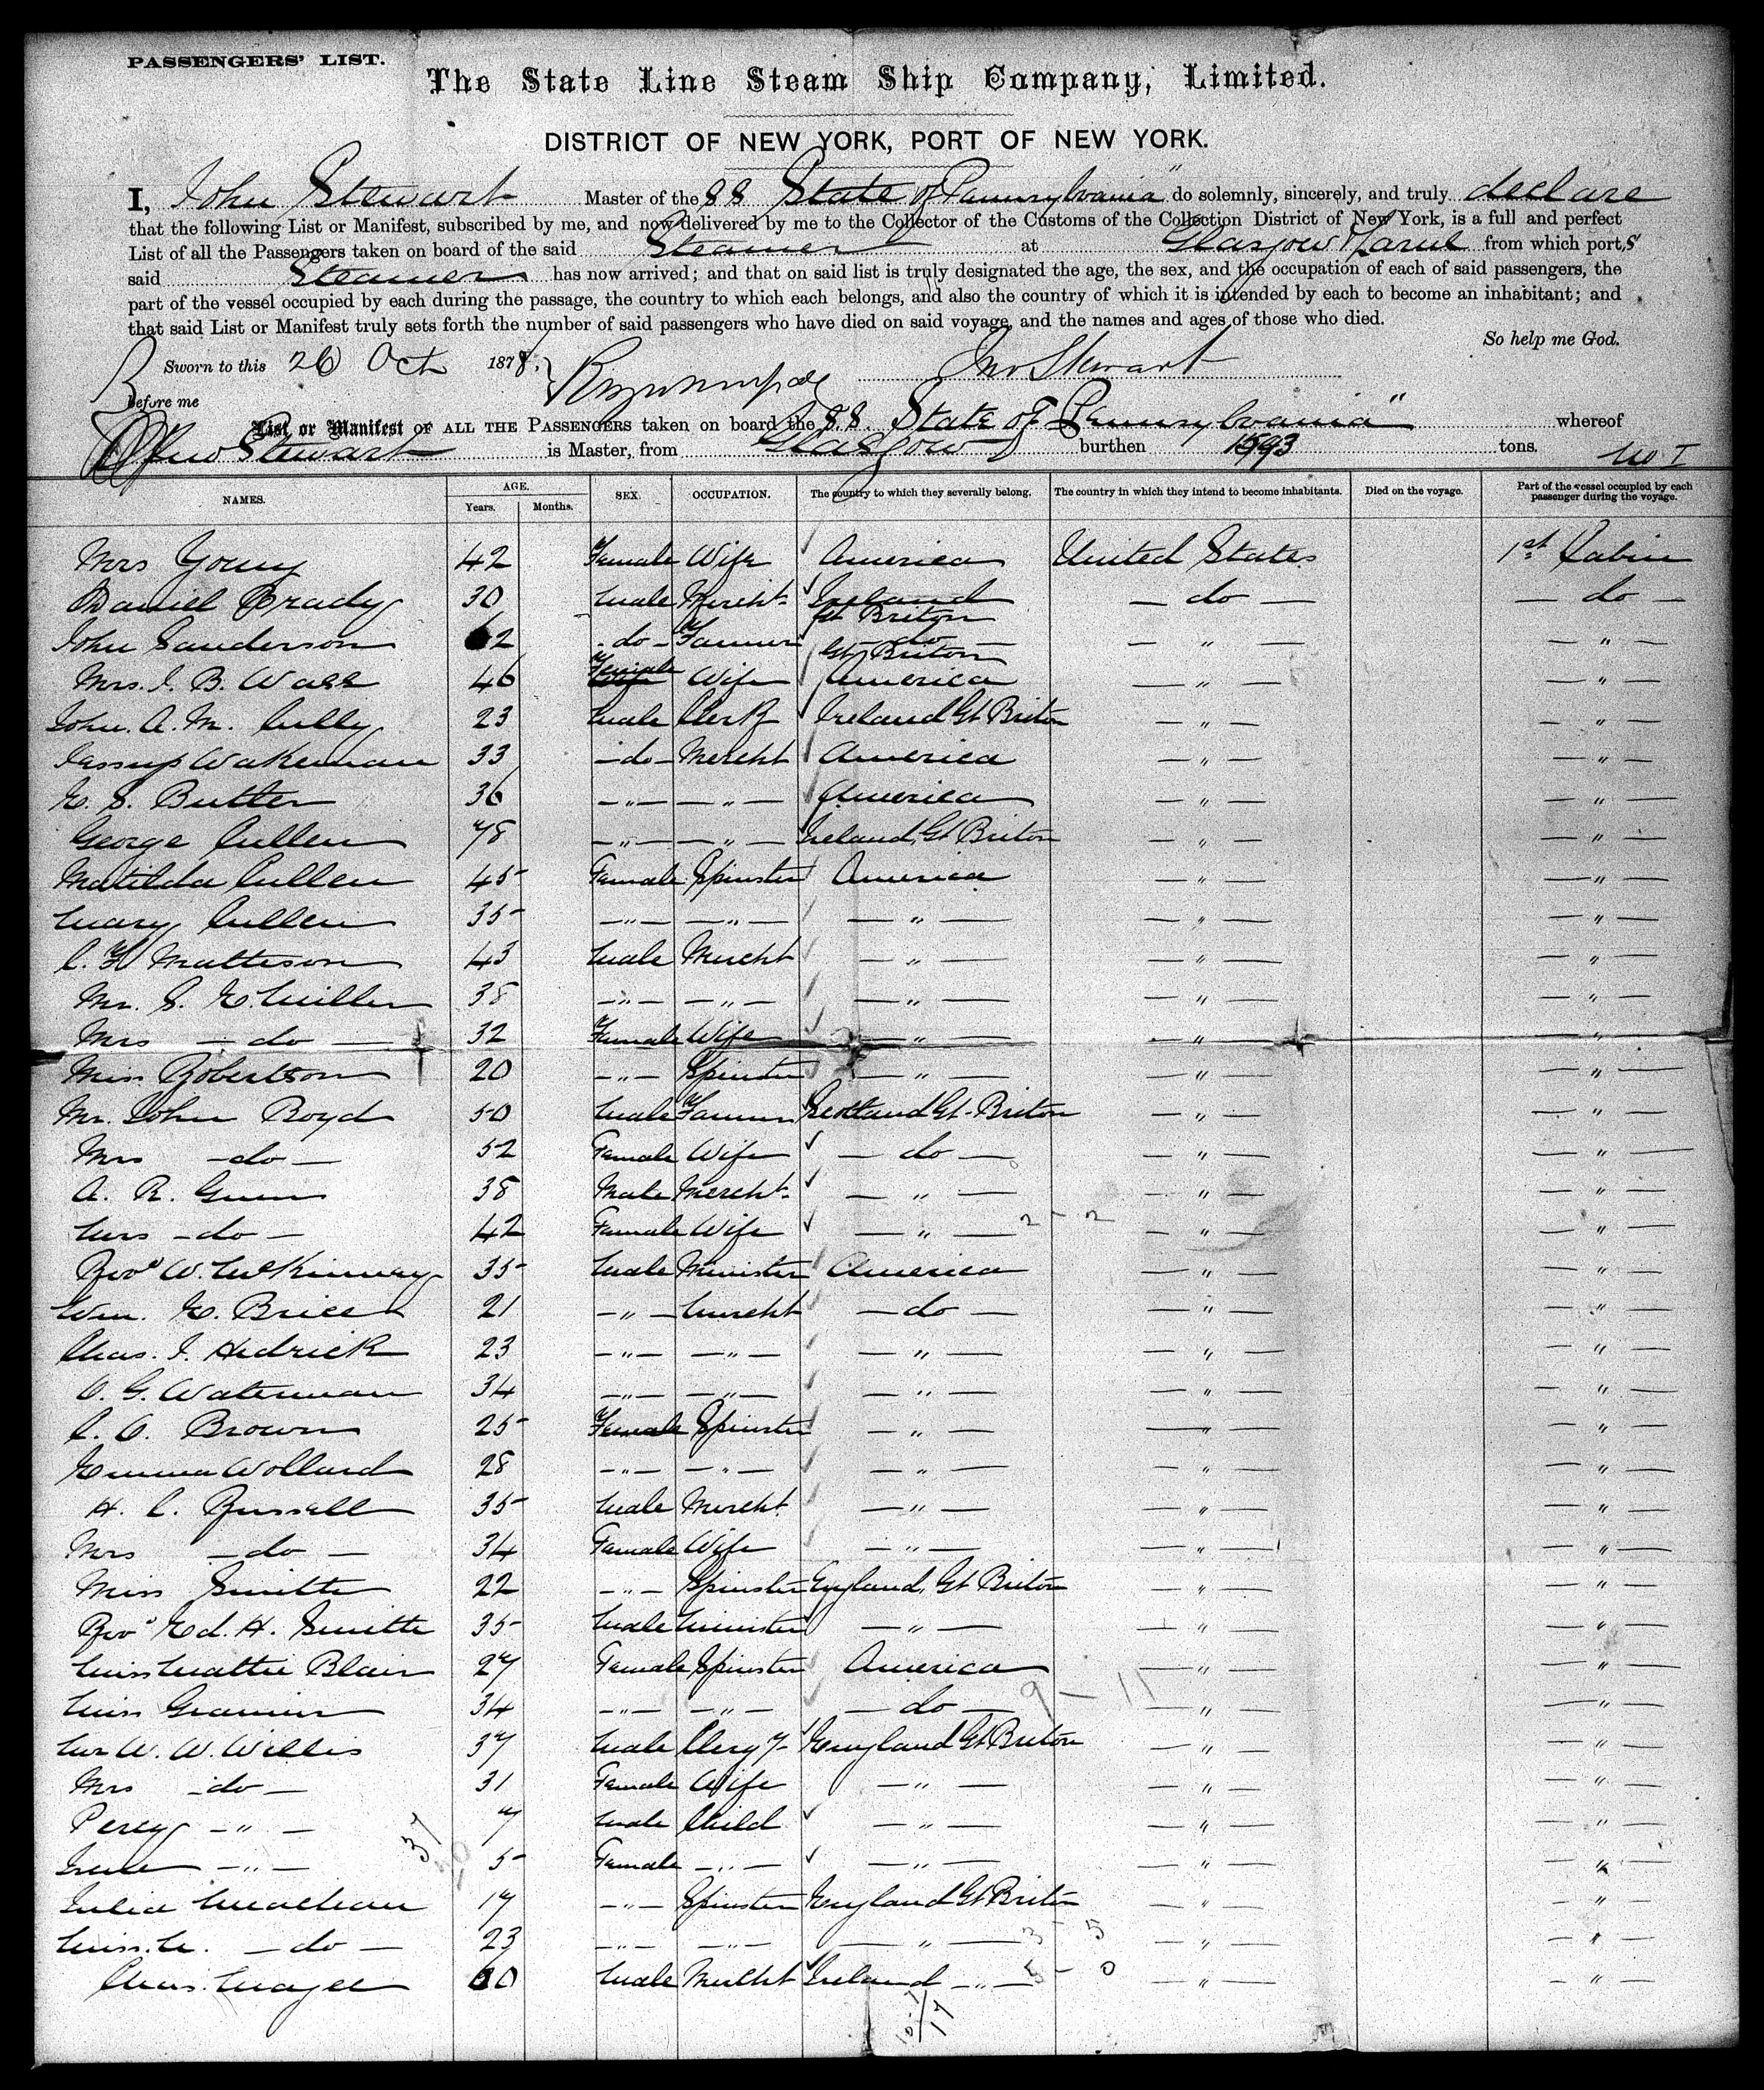 PASSENGERS' LIST.
The State Line Steam Ship Company, Limited.
DISTRICT OF NEW YORK, PORT OF NEW YORK.
I, John Stewart Master of the SS "State of Pennsylvania" do solemnly, sincerely, and truly declare
that the following List or Manifest, subscribed by me, and now delivered by me to the Collector of the Customs of the Collection District of New York, is a full and perfect
List of all the Passengers taken on board of the said Steamer at Glasgow & Larne from which port,s
said Steamer has now arrived; and that on said list is truly designated the age, the sex, and the occupation of each of said passengers, the
part of the vessel occupied by each during the passage, the country to which each belongs, and also the country of which it is intended by each to become an inhabitant; and
that said List or Manifest truly sets forth the number of said passengers who have died on said voyage, and the names and ages of those who died.
So help me God.
Sworn to this 26 Oct 1878. Jno Stewart
Before me
List or Manifest OF ALL THE PASSENGERS taken on board the SS State of Pennsylvania" whereof
Jno Stewart is Master, from Glasgow burthen 1693 tons. No I
NAMES. AGE. SEX. OCCUPATION. The country to which they severally belong. The country in which they intend to become inhabitants. Died on the voyage. Part of the vessel occupied by each passenger during the voyage.
Years. Months.
Mrs Young 42 Female Wife America United States 1st Cabin
Daniel Brady 30 Male Mercht Ireland Gt Briton — do — — do —
John Sanderson 62 - do - Farmer do Gt Briton — " — — " —
Mrs. J. B. Wall 46 Female Wife America — " — — " —
John. A. M. Cully 23 Male Clerk Ireland Gt Briton — " — — " —
Jessup Wakeman 33 - do - Mercht America — " — — " —
E. S. Butler 36 — " — — " — America — " — — " —
George Cullen 78 — " — — " — Ireland, Gt Briton — " — — " —
Matilda Cullen 45 Female Spinster America — " — — " —
Mary Cullen 35 — " — — " — — " — — " — — " —
C. F. Matteson 43 Male Mercht — " — — " — — " —
Mr. S. E. Miller 38 — " — — " — — " — — " — — " —
Mrs — do — 32 Female Wife — " — — " — — " —
Miss Robertson 20 — " — Spinster — " — — " — — " —
Mr. John Boyd 50 Male Farmer Scotland Gt-Briton — " — — " —
Mrs — do — 52 Female Wife — do — — " — — " —
A. R. Gunn 38 Male Mercht. — " — — " — — " —
Mrs — do — 42 Female Wife — " — 2 - 2 — " — — " —
Revd W. McKinney 35 Male Minister America — " — — " —
Wm. E. Brice 21 — " — Mercht — do — — " — — " —
Chas. I. Hedrick 23 — " — — " — — " — — " — — " —
O. G. Waterman 34 — " — — " — — " — — " — — " —
C. O. Brown 25 Female Spinster — " — — " — — " —
Emma Wollard 28 — " — — " — — " — — " — — " —
H. C. Russell 35 Male Mercht. — " — — " — — " —
Mrs — do — 34 Female Wife — " — — " — — " —
Miss Smith 22 — " — Spinster England, Gt Briton — " — — " —
Revd Ed. H. Smith 35 Male Minister — " — — " — — " —
Miss Mattie Blair 27 Female Spinster America — " — — " —
Miss 34 — " — — " — — do — 9 - 11 — " — — " —
Mr W. W. Willis 37 Male Clergy- England Gt Briton — " — — " —
Mrs — do — 31 Female Wife — " — — " — — " —
Percy — " — 7 Male Child — " — — " — — " —
37
Irene — " — 5 Female — " — — " — — " — — " —
Julia 17 — " — Spinster England Gt Briton — " — — " —
Miss. M. — do — 23 — " — — " — — " — 3 - 5 — " — — " —
Chas. Magee 60 Male Mercht Ireland — " — 5 - 0 — " — — " —